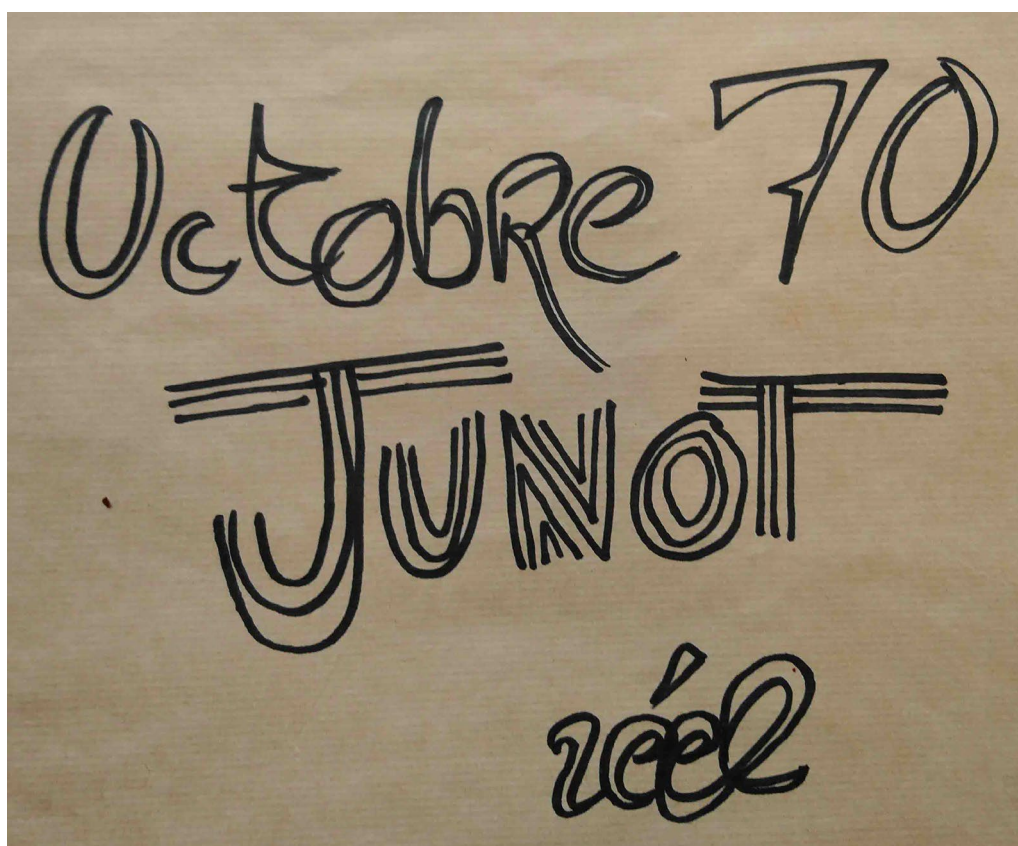 Octobre 70
JUNOT
réel